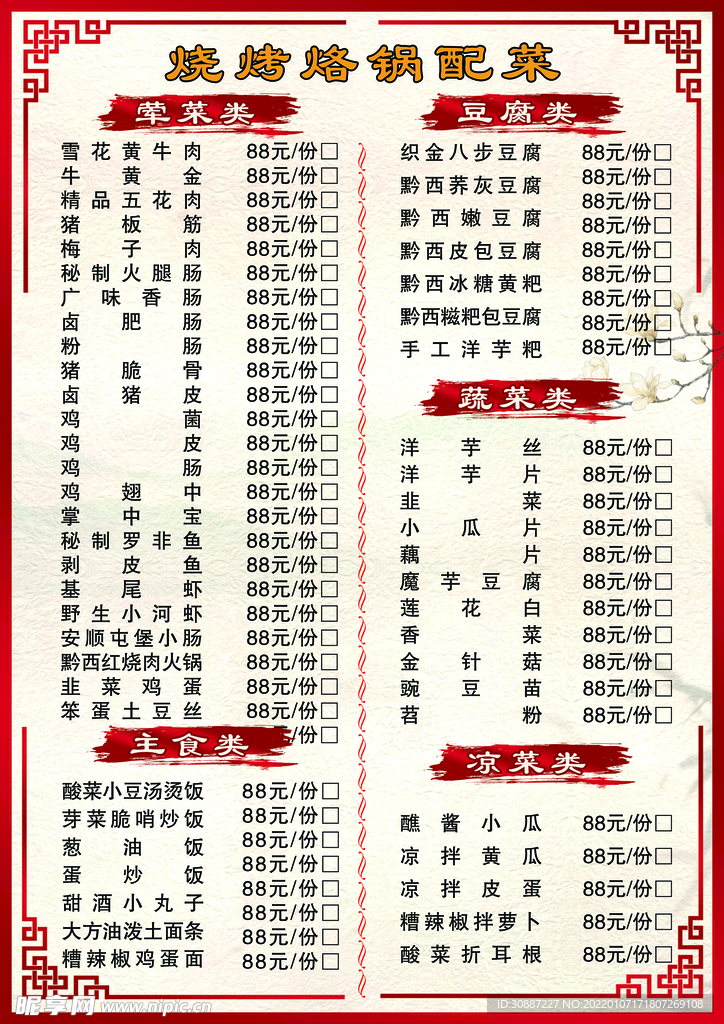 烧烤烙锅配菜
荤菜类
雪花黄牛肉 88元/份□
牛黄金 88元/份□
精品五花肉 88元/份□
猪板筋 88元/份□
梅子肉 88元/份□
秘制火腿肠 88元/份□
广味香肠 88元/份□
卤肥肠 88元/份□
粉肠 88元/份□
猪脆骨 88元/份□
卤猪皮 88元/份□
鸡菌 88元/份□
鸡皮 88元/份□
鸡肠 88元/份□
鸡翅中 88元/份□
掌中宝 88元/份□
秘制罗非鱼 88元/份□
剥皮鱼 88元/份□
基尾虾 88元/份□
野生小河虾 88元/份□
安顺屯堡小肠 88元/份□
黔西红烧肉火锅 88元/份□
韭菜鸡蛋 88元/份□
笨蛋土豆丝 88元/份□
/份□
主食类
酸菜小豆汤烫饭 88元/份□
芽菜脆哨炒饭 88元/份□
葱油饭 88元/份□
蛋炒饭 88元/份□
88元/份□
甜酒小丸子 88元/份□
大方油泼土面条 88元/份□
糟辣椒鸡蛋面 88元/份□
豆腐类
织金八步豆腐 88元/份□
黔西荞灰豆腐 88元/份□
88元/份□
黔西嫩豆腐 88元/份□
黔西皮包豆腐 88元/份□
黔西冰糖黄粑 88元/份□
88元/份□
黔西糍粑包豆腐 88元/份□
手工洋芋粑 88元/份□
蔬菜类
洋芋丝 88元/份□
洋芋片 88元/份□
韭菜 88元/份□
小瓜片 88元/份□
藕片 88元/份□
魔芋豆腐 88元/份□
莲花白 88元/份□
香菜 88元/份□
金针菇 88元/份□
豌豆苗 88元/份□
苕粉 88元/份□
凉菜类
醮酱小瓜 88元/份□
凉拌黄瓜 88元/份□
凉拌皮蛋 88元/份□
糟辣椒拌萝卜 88元/份□
酸菜折耳根 88元/份□
昵享网 www.nipic.cn
ID:30887227 NO:20220107171807269108